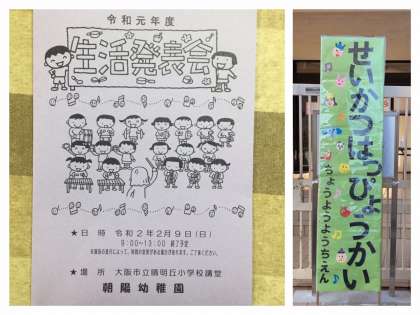 令和元年度
生活発表会
★ 日 時 令和2年2月9日(日)
9:00~13:00 終了予定
★ 場 所 大阪市立晴明丘小学校講堂
朝陽幼稚園
せいかつはっぴょうかい
ちょうようようちえん